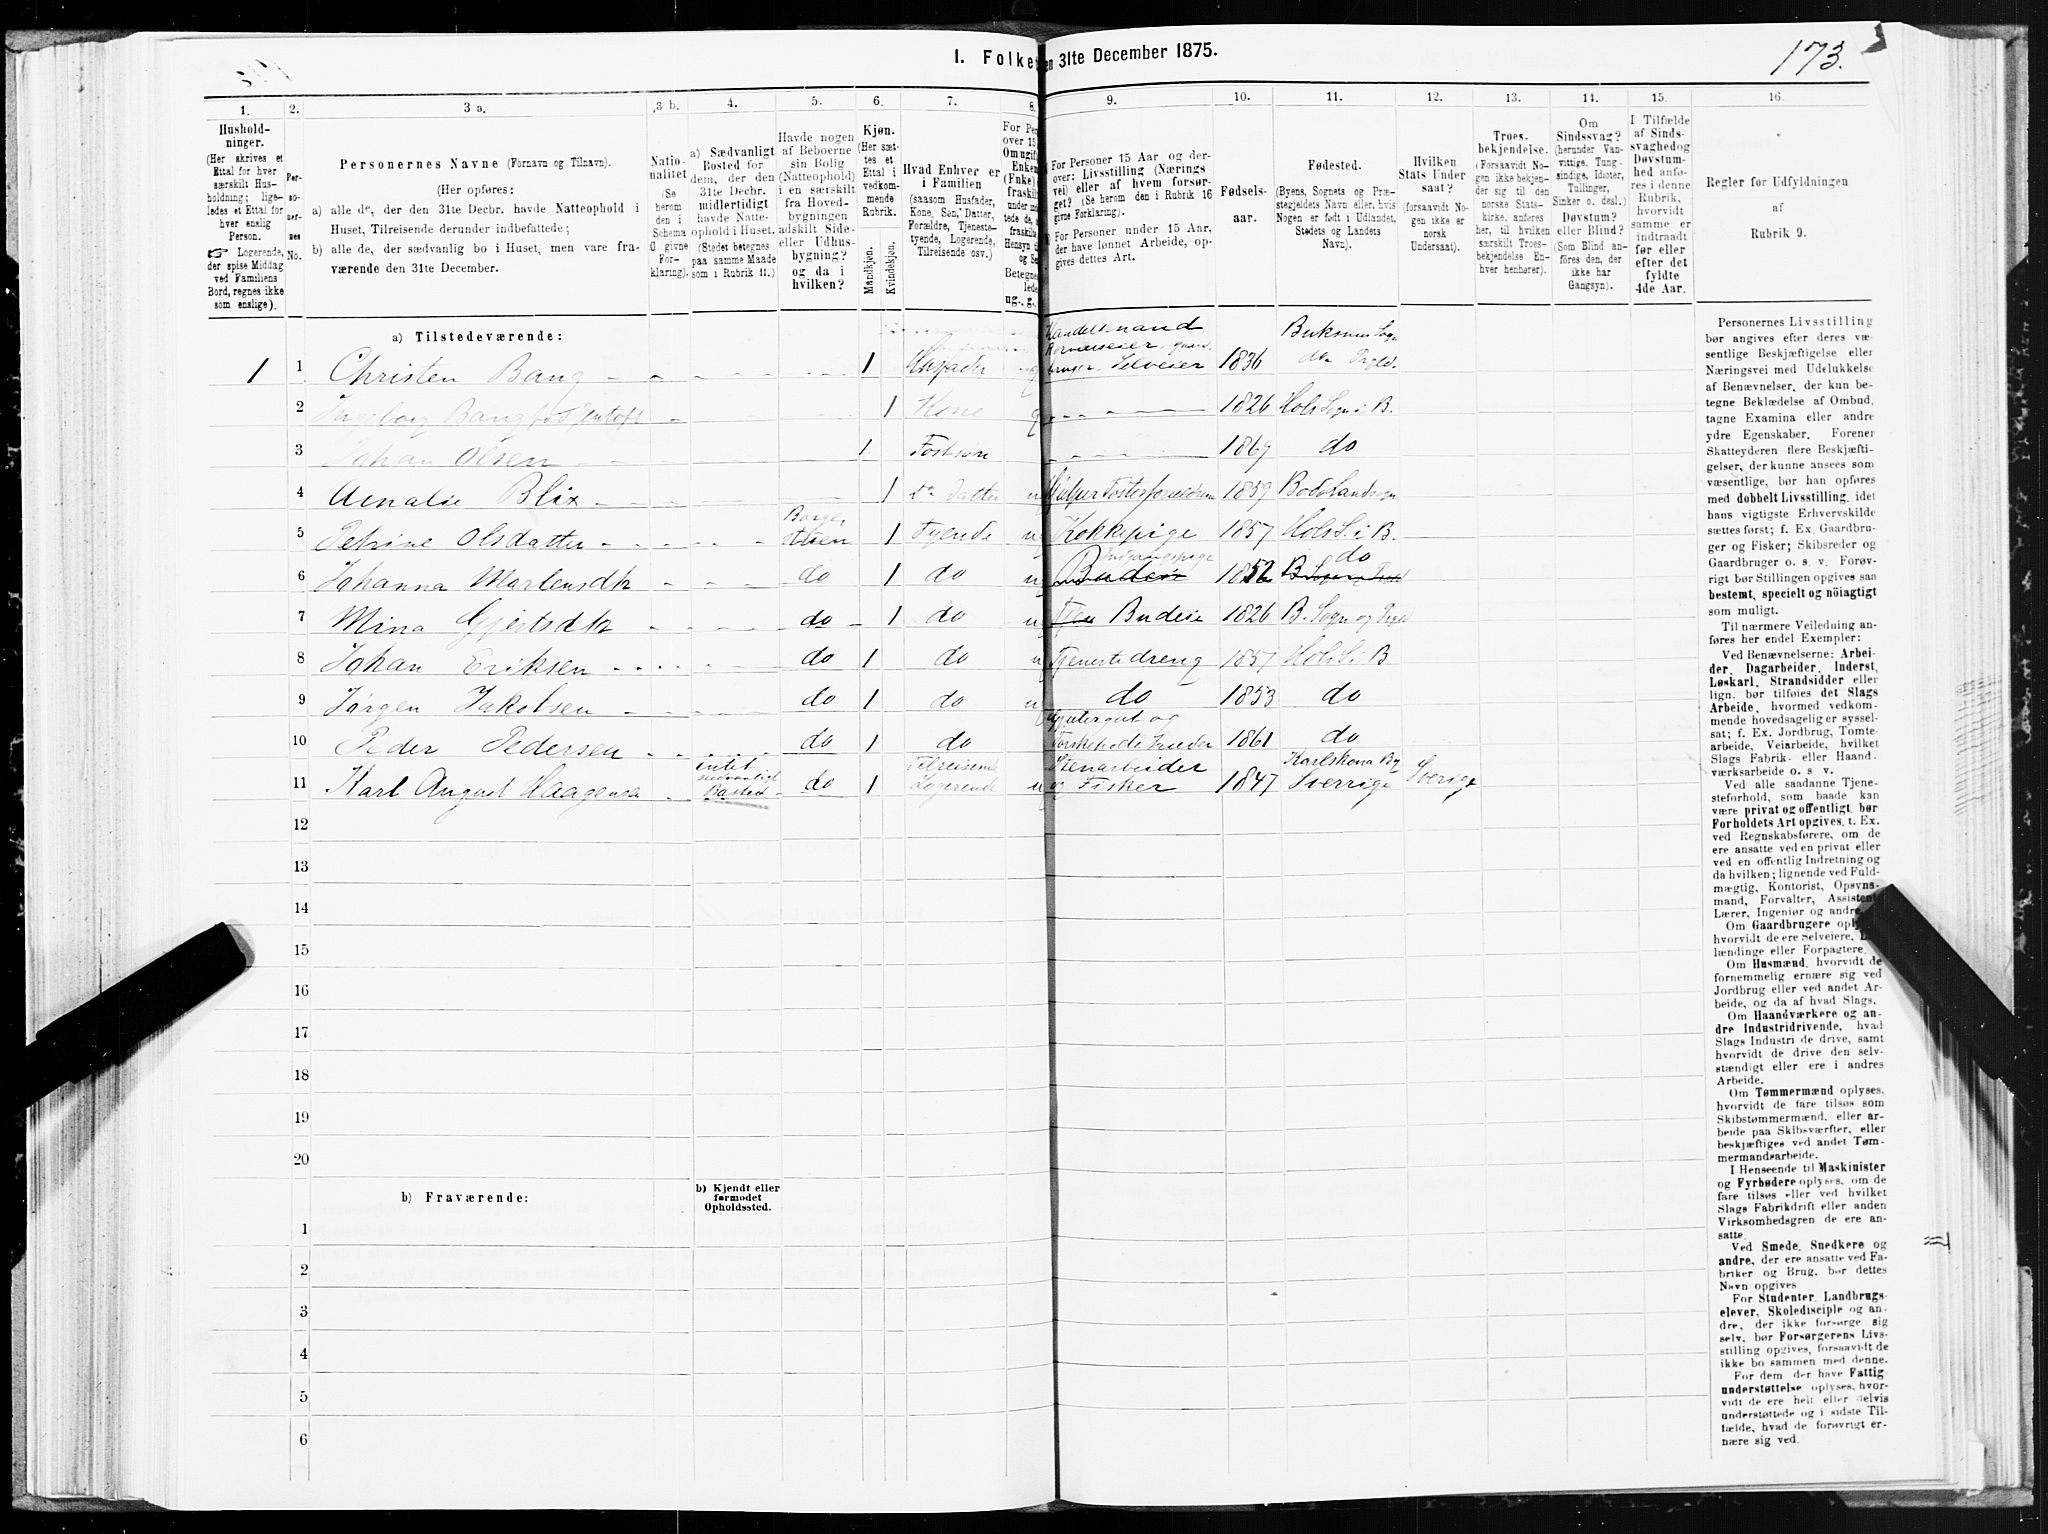 1. Folke en 31te December 1875.
173.
1. 2. 3 a. 3 b. 4. 5. 6. 7. 8. 9. 10. 11. 12. 13. 14. 15. 16.
Hushold-
ninger.
(Her skrives et
Ettal for hver
særskilt Hus-
holdning; lige-
ledes et Ettal for
hver enslig
Person.
☞ Logerende,
der spise Middag
ved Familiens
Bord, regnes ikke
som enslige).
Per-
so-
ner-
nes
No.
Personernes Navne (Fornavn og Tilnavn).
(Her opføres:
a) alle de, der den 31te Decbr. havde Natteophold i
Huset, Tilreisende derunder indbefattede;
b) alle de, der sædvanlig bo i Huset, men vare fra-
værende den 31te December.
Natio-
nalitet
(Se
herom
den i
Schema
G givne
For-
klaring).
a) Sædvanligt
Bosted for
dem, der den
31te Decbr.
midlertidigt
havde Natte-
ophold i Huset.
(Stedet betegnes
paa samme Maade
som i Rubrik 11.)
Havde nogen
af Beboerne
sin Bolig
(Natteophold)
i en særskilt
fra Hoved-
bygningen
adskilt Side-
eller Udhus-
bygning?
og da i
hvilken?
Kjøn.
(Her sæt-
tes et
Ettal i
vedkom-
mende
Rubrik.
Mandkjøn.
Kvindekjøn.
Hvad Enhver er
i Familien
(saasom Husfader,
Kone, Søn, Datter,
Forældre, Tjeneste-
tyende, Logerende,
Tilreisende osv.)
For Per
over 15
Om ugift
Enken
(Enke)
fraskilt
under in
tede de,
fraskilte
Hensyn
og Se
Betegne
lede
ug., g.,
For Personer 15 Aar og der-
over: Livsstilling (Nærings
vei) eller af hvem forsør-
get? (Se herom den i Rubrik 16
givne Forklaring).
For Personer under 15 Aar,
der have lønnet Arbeide, op-
gives dettes Art.
Fødsels-
aar.
Fødested.
(Byens, Sognets og Præ-
stegjeldets Navn eller, hvis
Nogen er født i Udlandet,
Stedets og Landets
Navn).
Hvilken
Stats Under
saat?
(forsaavidt No-
gen ikke er
norsk
Undersaat).
Troes-
bekjendelse.
(Forsaavidt No-
gen ikke bekjen-
der sig til den
norske Stats-
kirke, anføres
her, til hvilken
særskilt Troes-
bekjendelse En-
hver henhører).
Om
Sindssvag?
(herunder Van-
vittige, Tung-
sindige, Idioter,
Tullinger,
Sinker o. desl.)
Døvstum?
eller Blind?
(Som Blind an-
føres den, der
ikke har
Gangsyn).
I Tilfælde
af Sinds-
svaghedog
Døvstum-
hed anfø-
res i denne
Rubrik,
hvorvidt
samme er
indtraadt
før eller
efter det
fyldte
4de Aar.
Regler for Udfyldningen
af
Rubrik 9.
a) Tilstedeværende:
1 1 Christen Bang 1 Husfader g Handelsmand Selveier 1836 Buksnes Sogn
2 Ingeborg Bang 1 Kone g 1826 Hols Sogn i B.
3 Johan Olsen 1 Fostsøn 1869 do
4 Amalie Blix 1 do Datter u Hjelper Fosterforældrene 1859 Bodø Landsogn
5 Petrine Olsdatter 1 Tyende u Kokkepige 1857 Hols S. i B.
6 Johanna Martensdtr do 1 do u Budeie 1852 do
7 Mina Gjertsdtr do 1 do u Budeie 1826 B. Sogn og Prgld
8 Johan Eriksen do 1 do u Tjenestedreng 1857 Hols S. i B
9 Jørgen Jakobsen do 1 do u do 1853 do
10 Peder Pedersen do 1 do Gjætergut og 1861 do
11 Karl August Haagensen intet sædvanligt Bosted do 1 Tilreisende Logerende u Stenarbeider og Fisker 1847 Karlskona By Sverrige Sverige
12
13
14
15
16
17
18
19
20
b) Fraværende:
b) Kjendt eller
formodet
Opholdssted.
1
2
3
4
5
6
Personernes Livsstilling
bør angives efter deres væ-
sentlige Beskjæftigelse eller
Næringsvei med Udelukkelse
af Benævnelser, der kun be-
tegne Beklædelse af Ombud,
tagne Examina eller andre
ydre Egenskaber. Forener
Skatteyderen flere Beskjæfti-
gelser, der kunne ansees som
væsentlige, bør han opføres
med dobbelt Livsstilling, idet
hans vigtigste Erhvervskilde
sættes først; f. Ex. Gaardbru-
ger og Fisker; Skibsreder og
Gaardbruger o. s. v. Forøv-
rigt bør Stillingen opgives saa
bestemt, specielt og nöiagtigt
som muligt.
Til nærmere Veiledning an-
føres her endel Exempler:
Ved Benævnelserne: Arbei-
der, Dagarbeider, Inderst,
Løskarl, Strandsidder eller
lign. bør tilføies det Slags
Arbeide, hvormed vedkom-
mende hovedsagelig er syssel-
sat; f. Ex. Jordbrug, Tomte-
arbeide, Veiarbeide, hvilket
Slags Fabrik- eller Haand-
værksarbeide o. s. v.
Ved alle saadanne Tjene-
steforhold, som baade kan
være privat og offentligt, bør
Forholdets Art opgives, t. Ex.
ved Regnskabsførere, om de
ere ansatte ved en privat eller
ved en offentlig Indretning og
da hvilken; lignende ved Fuld-
mægtig, Kontorist, Opsyns-
mand, Forvalter, Assistent,
Lærer, Ingeniør og andre.
Om Gaardbrugere oply
hvorvidt de ere Selveiere,
lændinge eller Forpagtere.
Om Husmænd, hvorvidt de
fornemmelig ernære sig ved
Jordbrug eller ved andet Ar-
beide, og da af hvad Slags.
Om Haandværkere og an-
dre Industridrivende, hvad
Slags Industri de drive, samt
hvorvidt de drive den selv-
stændigt eller ere i andres
Arbeide.
Om Tømmermænd oplyses,
hvorvidt de fare tilsøs som
Skibstømmermænd, eller ar-
beide paa Skibsværfter, eller
beskjæftiges ved andet Tøm-
mermandsarbeide.
I Henseende til Maskinister
og Fyrbødere oplyses, om de
fare tilsøs eller ved hvilket
Slags Fabrikdrift eller anden
Virksomhedsgren de ere an-
satte.
Ved Smede, Snedkere og
andre, der ere ansatte ved Fa-
briker og Brug, bør dettes
Navn opgives
For Studenter, Landbrugs-
elever, Skoledisciple og an-
dre, der ikke forsørge sig
selv, bør Forsørgerens Livs-
stilling opgives, forsaavidt de
ikke bo sammen med denne.
For dem, der have Fattig
understøttelse, oplyses, hvor-
vidt de ere helt eller delvis
understøttede og i sidste Til-
fælde, hvad de forøvrigt er-
nære sig ved.